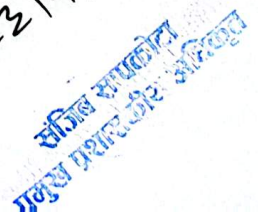 संजिब सापकोटा
प्रमुख प्रशासकीय अधिकृत